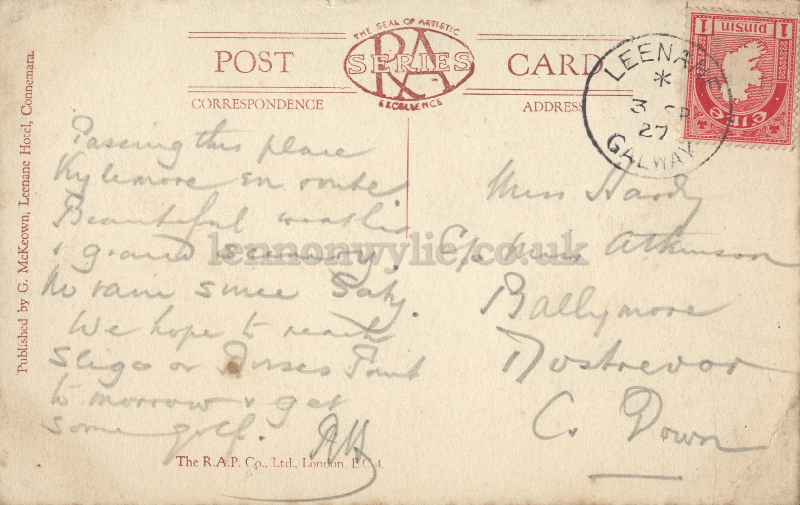 THE SEAL OF ARTISTIC
POST RA SERIES CARD
EXCELLENCE
CORRESPONDENCE ADDRESS
LEENANE
3 SP
27
GALWAY
1 pinsin 1
éire
Published by G. McKeown, Leenane Hotel, Connemara.
Passing this place
Kylemore en route
Beautiful weather
& grand scenery.
No rain since Saty.
We hope to reach
Sligo or Rosses Point
tomorrow & get
some golf. RH
Miss Hardy
C/o Miss Atkinson
Ballymore
Rostrevor
Co Down
lennonwylie.co.uk
The R.A.P. Co., Ltd., London, E.C.4.